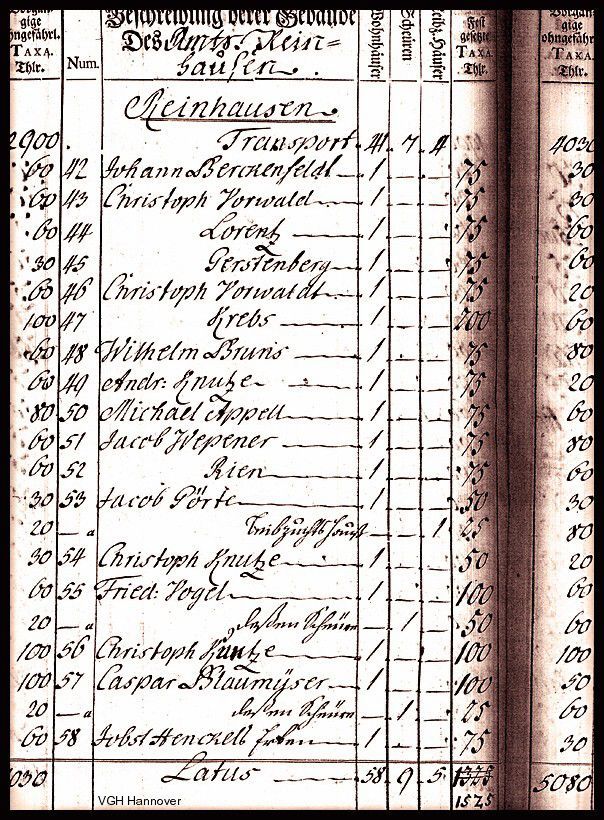 Vorgän- Beschreibung derer Gebäude Wohnhäuser Scheuren Leibz. Häuser Fest Vorgän-
gige Des Amts Rein- gesetzte gige
ohngefährl. hausen. TAXA. ohngefähr
TAXA. Thlr. TAXA.
Thlr. Num. Thlr.
Reinhausen
2900. Transport 41 7 4 4030
60 42 Johann Berckenfeldt 1 75 30
60 43 Christoph Vorwald 1 75 30
60 44 Lorentz 1 75 60
30 45 Gerstenberg 1 75 60
60 46 Christoph Vorwaldt 1 75 20
100 47 Krebs 1 200 60
60 48 Wilhelm Bruns 1 75 80
60 49 Andr: Knutze 1 75 20
80 50 Michael Appell 1 75 60
60 51 Jacob Wepener 1 75 80
60 52 Rien 1 75 60
30 53 Jacob Görte 1 50 30
20 — a Leibzuchts Hauß 1 25 80
30 54 Christoph Knutze 1 50 20
60 55 Fried: Vogel 1 100 60
20 — a deßen Scheure 1 50 60
100 56 Christoph Kuntze 1 100 100
100 57 Caspar Blaumÿser 1 100 50
20 — a deßen Scheure 1 25 60
60 58 Jobst Henckels Erben 1 75 30
4030 Latus 58 9 5 5080
1525
VGH Hannover